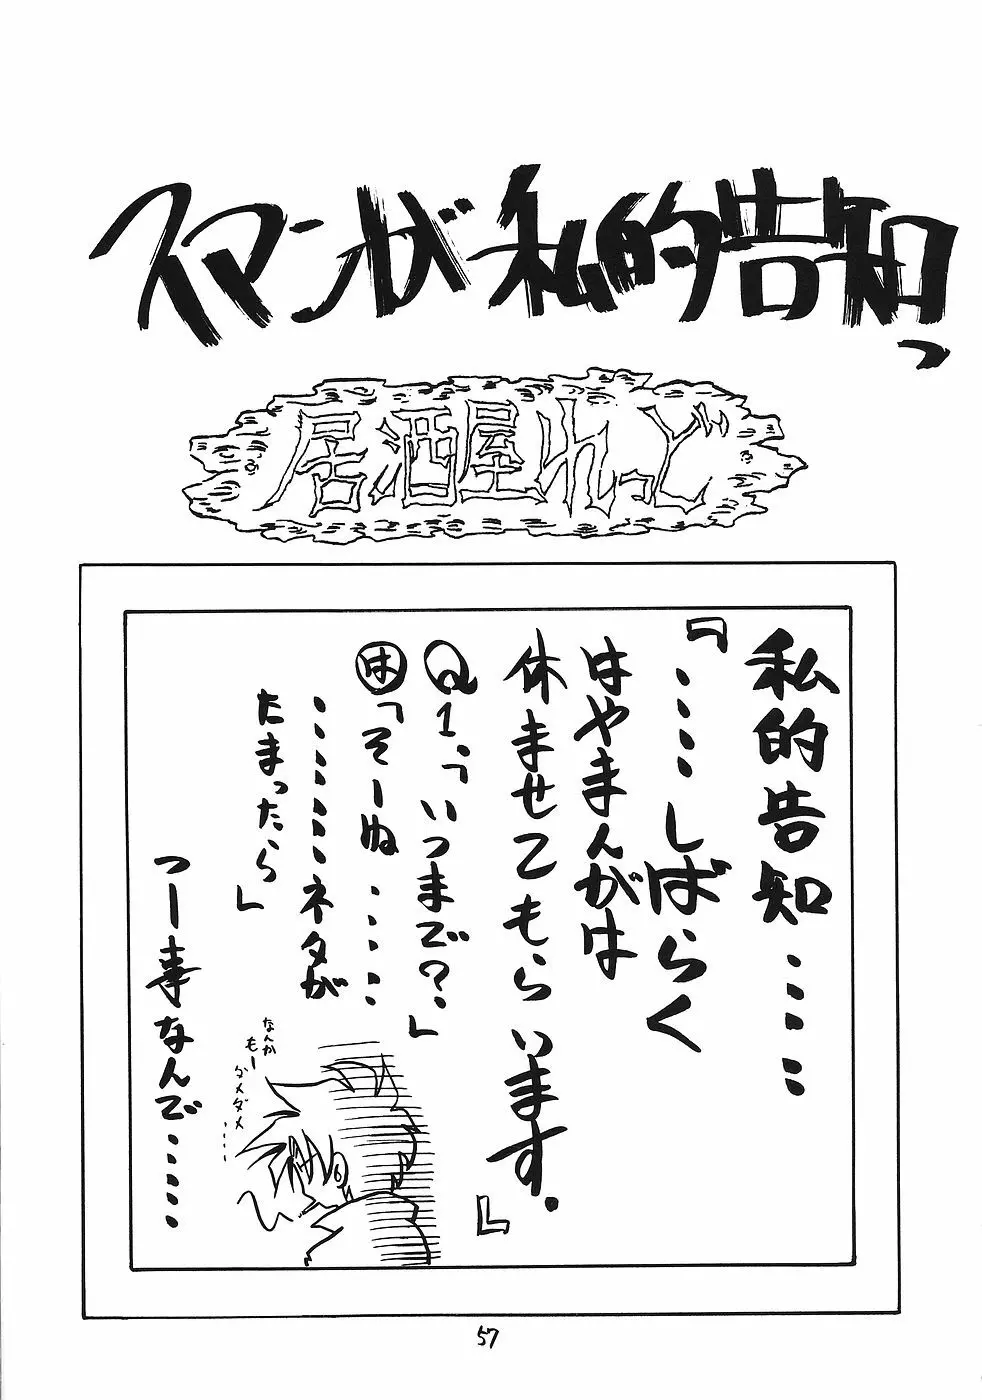 スマンが私的告知っ
居酒屋れっど
私的告知……
『……しばらく
はやまんがは
休ませてもらいます。』
Q1.「いつまで?」
は「そーね……
………ネタが
たまったら」
つー事なんで……
なんか
もー
ダメダメ…
57